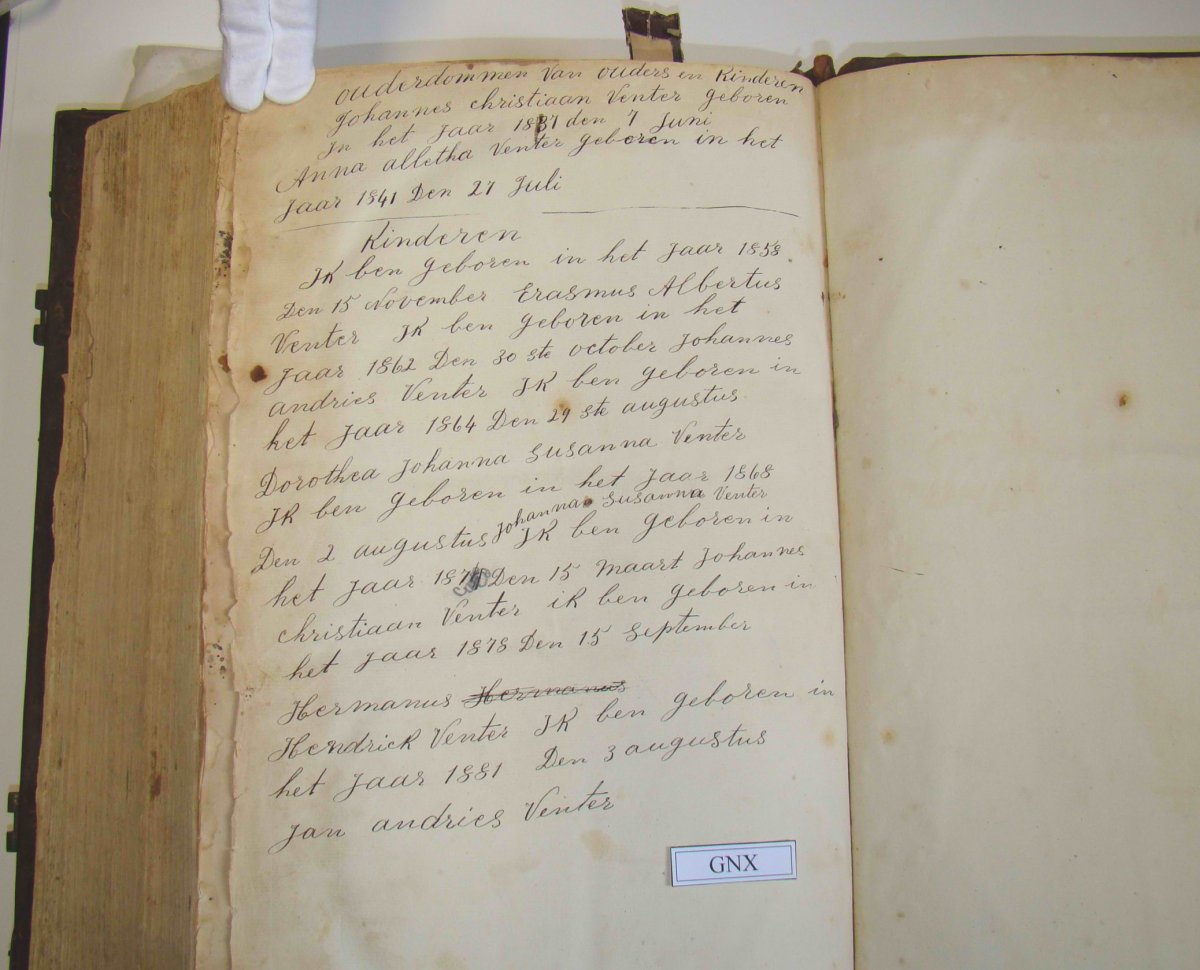 ouderdommen Van ouders en Kinderen
Johannes christiaan Venter geboren
In het Jaar 1837 den 7 Juni
Anna alletha Venter geboren in het
Jaar 1841 Den 27 Juli
Kinderen
IK ben geboren in het Jaar 1858
Den 15 November Erasmus Albertus
Venter IK ben geboren in het
Jaar 1862 Den 30 ste october Johannes
andries Venter IK ben geboren in
het Jaar 1864 Den 29 ste augustus
Dorothea Johanna Susanna Venter
IK ben geboren in het Jaar 1868
Den 2 augustus Johanna Susanna Venter
IK ben geboren in
het Jaar Den 15 maart Johannes
christiaan Venter iK ben geboren in
het Jaar 1878 Den 15 September
Hermanus Hermanus
HendricK Venter IK ben geboren in
het Jaar 1881 Den 3 augustus
Jan andries Venter
GNX